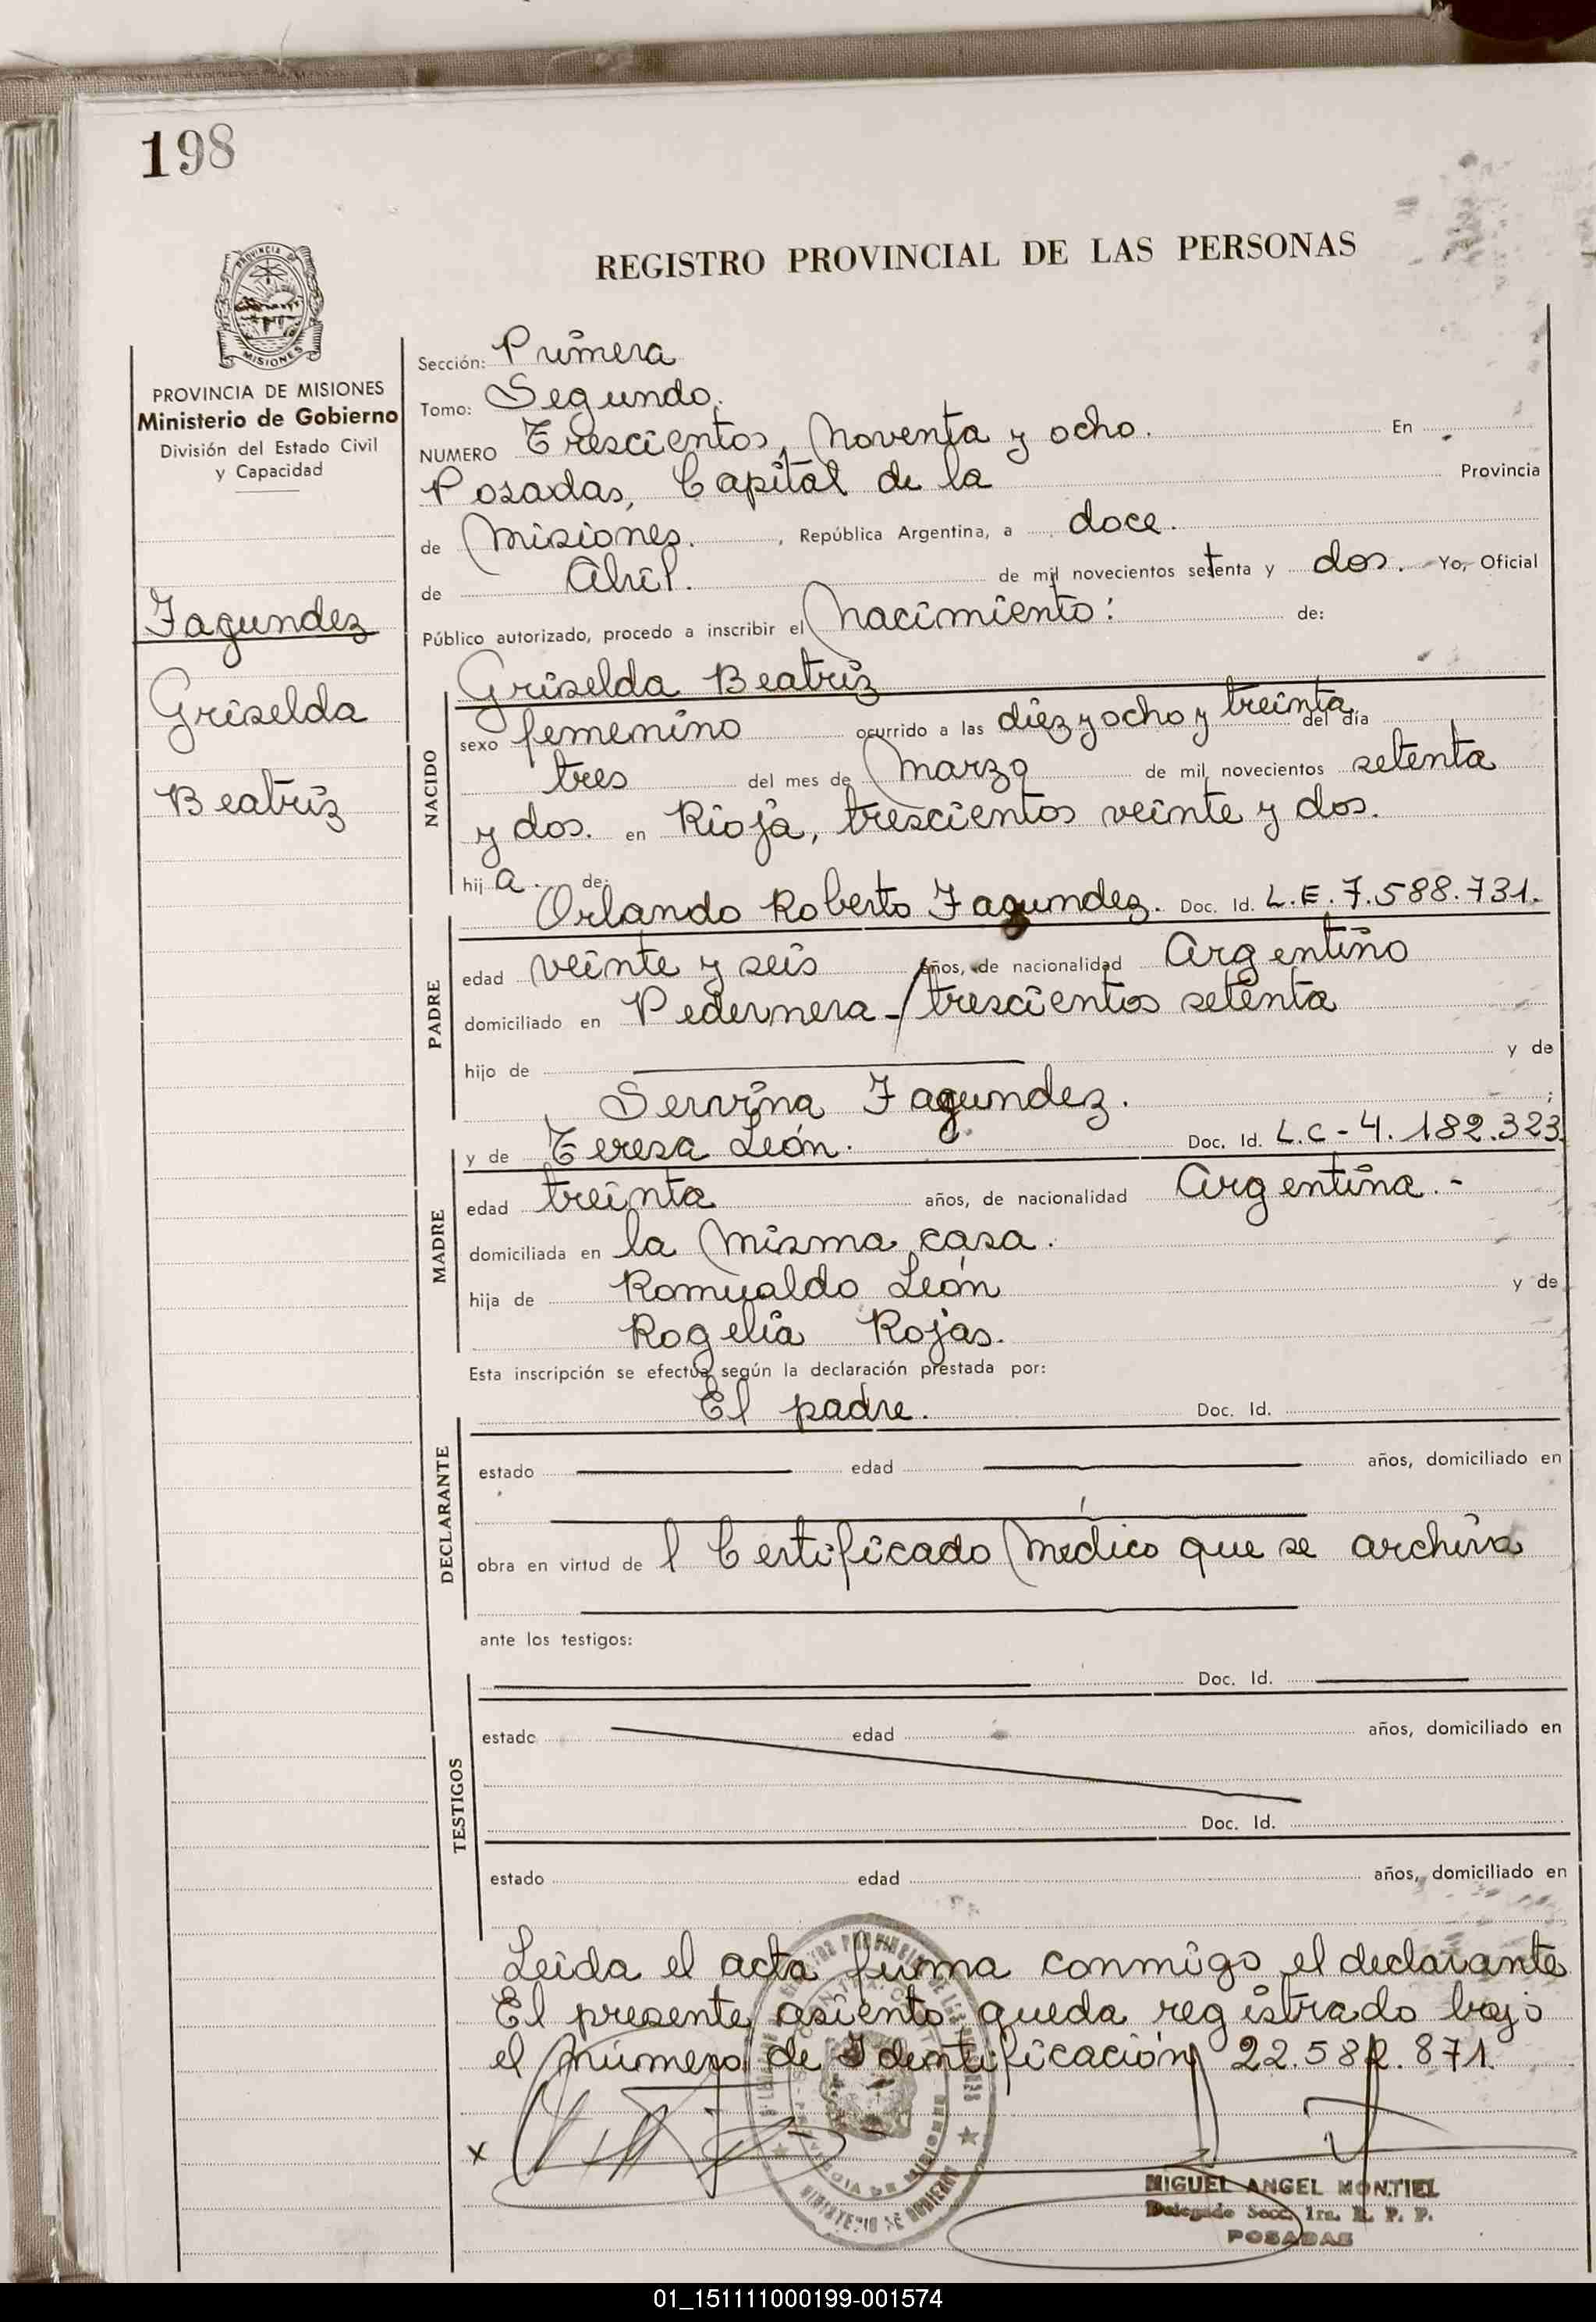 198
REGISTRO PROVINCIAL DE LAS PERSONAS
PROVINCIA DE MISIONES
Ministerio de Gobierno
División del Estado Civil
y Capacidad
Fagundez
Griselda
Beatriz
Sección: Primera
Tomo: Segundo.
NUMERO Trescientos, Noventa y ocho. En
Posadas, Capital de la Provincia
de Misiones. , República Argentina, a doce.
de Abril. de mil novecientos setenta y dos. Yo, Oficial
Público autorizado, procedo a inscribir el Nacimiento: de:
Griselda Beatriz
NACIDO
sexo femenino ocurrido a las diez y ocho y treinta del día
tres del mes de Marzo de mil novecientos setenta
y dos. en Rioja, trescientos veinte y dos.
hij a. de:
Orlando Roberto Fagundez. Doc. Id. L.E. 7.588.731.
PADRE
edad veinte y seis años, de nacionalidad Argentino
domiciliado en Pedernera - trescientos setenta
hijo de y de
Servina Fagundez. ;
y de Teresa León. Doc. Id. L.C - 4.182.323
MADRE
edad treinta años, de nacionalidad Argentina.-
domiciliada en la Misma casa.
hija de Romualdo León y de
Rogelia Rojas.
Esta inscripción se efectúa según la declaración prestada por:
El padre. Doc. Id.
DECLARANTE
estado edad años, domiciliado en
obra en virtud de l Certificado Médico que se archiva
ante los testigos:
Doc. Id.
TESTIGOS
estado edad años, domiciliado en
Doc. Id.
estado edad años, domiciliado en
Leida el acta firma conmigo el declarante
El presente asiento queda registrado bajo
el número de Identificación 22.582.871.
x
MIGUEL ANGEL MONTIEL
Delegado Secc. 1ra. R. P. P.
POSADAS
01_151111000199-001574